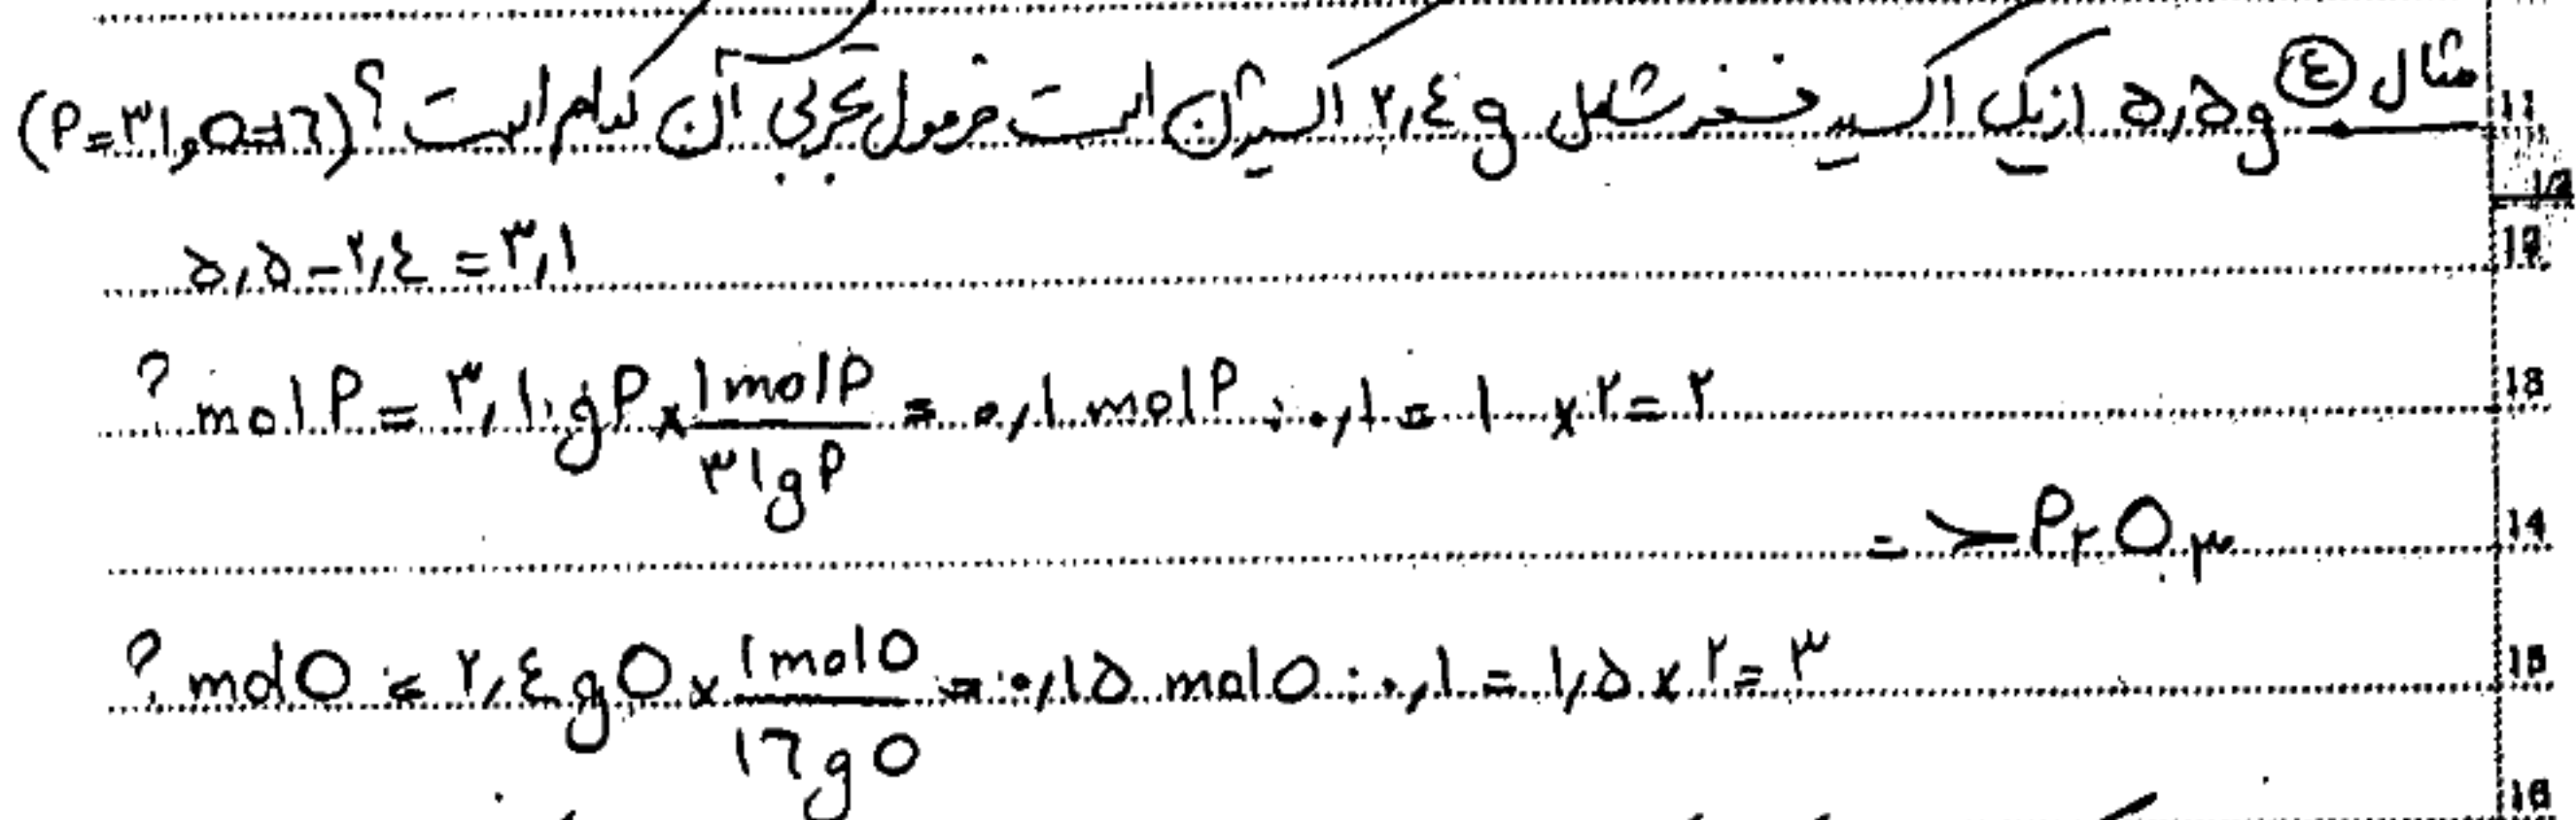 مثال ④ ۵٫۵g از یک اکسید فسفر شامل ۲٫٤g اکسیژن است فرمول تجربی آن کدام است ؟ (P=۳۱, O=۱٦)
11
۵٫۵ - ۲٫٤ = ۳٫۱
12
? mol P = ۳٫۱ g P × ۱ mol P / ۳۱ g P = ۰٫۱ mol P ÷ ۰٫۱ = ۱ × ۲ = ۲
13
=> P۲O۳
14
? mol O = ۲٫٤ g O × ۱ mol O / ۱٦ g O = ۰٫۱۵ mol O ÷ ۰٫۱ = ۱٫۵ × ۲ = ۳
15
16